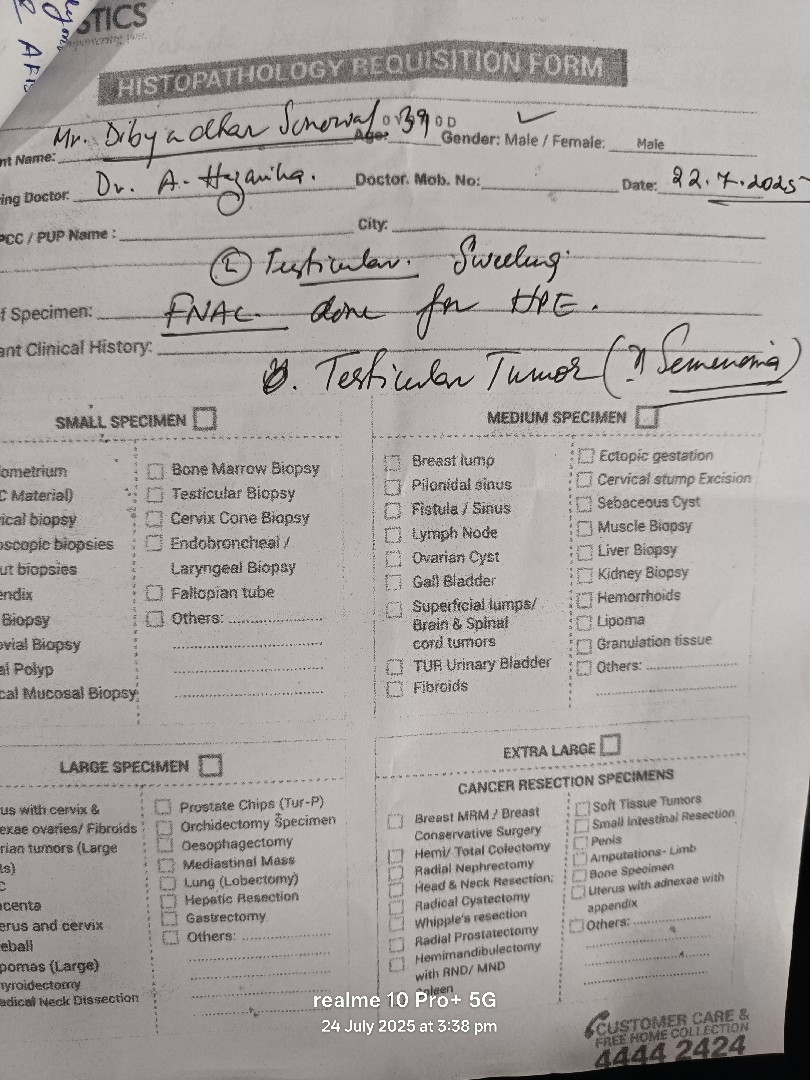 STICS
HISTOPATHOLOGY REQUISITION FORM
nt Name: Mr. Dibyadhar Sonowal Age: 39 Gender: Male / Female: Male
ing Doctor: Dr. A. Hazarika. Doctor. Mob. No: Date: 22.7.2025
PCC / PUP Name : City:
(L) Testicular. Swelling
f Specimen: FNAC done for HPE.
ant Clinical History:
Testicular Tumor (? Semenoma)
SMALL SPECIMEN
ometrium
C Material)
ical biopsy
oscopic biopsies
ut biopsies
endix
Biopsy
ovial Biopsy
al Polyp
cal Mucosal Biopsy
Bone Marrow Biopsy
Testicular Biopsy
Cervix Cone Biopsy
Endobroncheal /
Laryngeal Biopsy
Fallopian tube
Others:
MEDIUM SPECIMEN
Breast lump
Pilonidal sinus
Fistula / Sinus
Lymph Node
Ovarian Cyst
Gall Bladder
Superficial lumps/
Brain & Spinal
cord tumors
TUR Urinary Bladder
Fibroids
Ectopic gestation
Cervical stump Excision
Sebaceous Cyst
Muscle Biopsy
Liver Biopsy
Kidney Biopsy
Hemorrhoids
Lipoma
Granulation tissue
Others:
LARGE SPECIMEN
us with cervix &
exae ovaries/ Fibroids
rian tumors (Large
ts)
C
centa
erus and cervix
eball
pomas (Large)
hyroidectomy
adical Neck Dissection
Prostate Chips (Tur-P)
Orchidectomy Specimen
Oesophagectomy
Mediastinal Mass
Lung (Lobectomy)
Hepatic Resection
Gastrectomy
Others:
EXTRA LARGE
CANCER RESECTION SPECIMENS
Breast MRM / Breast
Conservative Surgery
Hemi/ Total Colectomy
Radial Nephrectomy
Head & Neck Resection:
Radical Cystectomy
Whipple's resection
Radial Prostatectomy
Hemimandibulectomy
with RND/ MND
Spleen
Soft Tissue Tumors
Small Intestinal Resection
Penis
Amputations- Limb
Bone Specimen
Uterus with adnexae with
appendix
Others:
realme 10 Pro+ 5G
24 July 2025 at 3:38 pm
CUSTOMER CARE &
FREE HOME COLLECTION
4444 2424